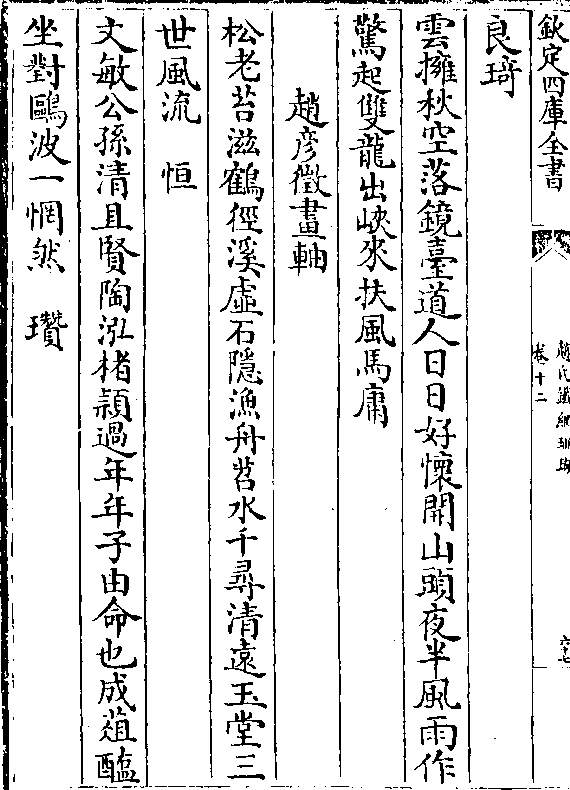 欽定四庫全書
趙氏鐵網珊瑚
卷十二
六十七
良琦
雲擁秋空落鏡臺道人日日好懷開山頭夜半風雨作
驚起雙龍出峽來扶風馬庸
趙彦徵畫軸
松老苔滋鶴徑溪虛石隱漁舟苕水千尋清遠玉堂三
世風流 恒
文敏公孫清且賢陶泓楮穎過年年子由命也成葅醢
坐對鷗波一惘然 瓚